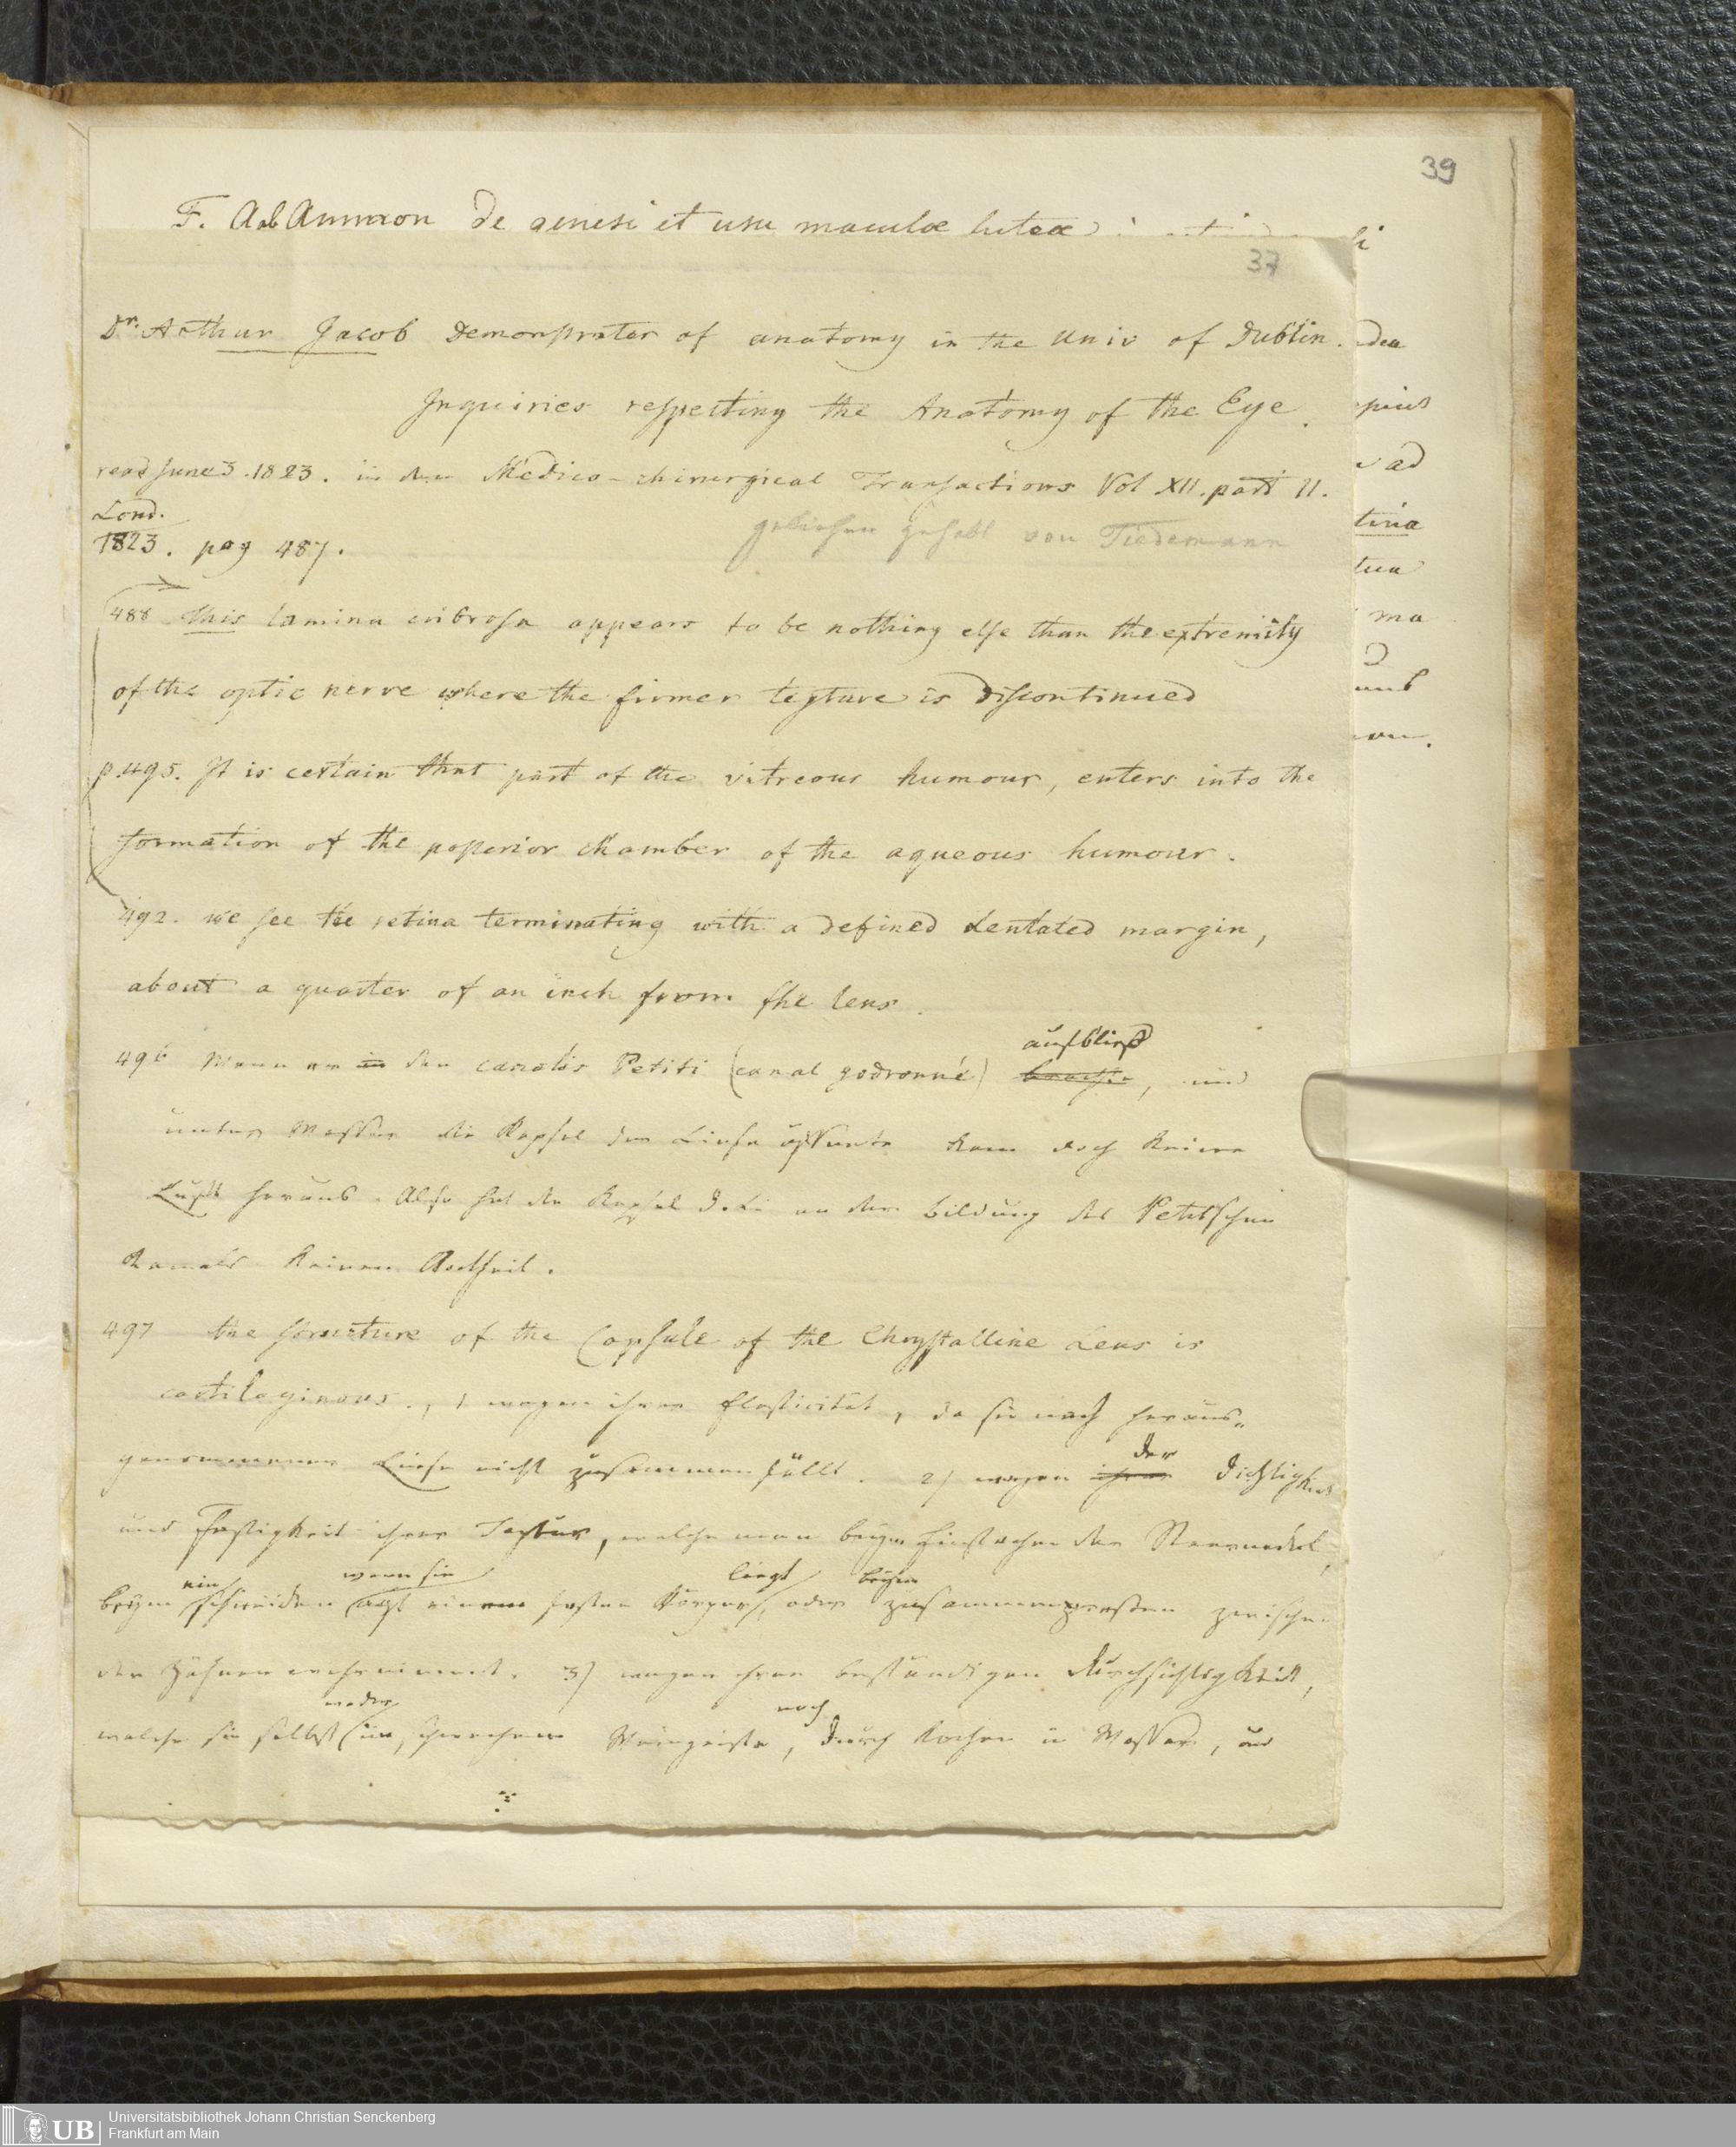 39
F. Aab Ammon De genesi et usu maculæ luteæ
37
Dr. Arthur Jacob Demonstrator of anatomy in the Univ of Dublin.
Inquiries respecting the Anatomy of the Eye.
read June 3. 1823. in den Medico-chirurgical Transactions Vol XII. part II.
Lond.
1823. pag 487.
geliehen gehabt von Tiedemann
488 This lamina cribrosa appears to be nothing else than the extremity
of the optic nerve where the firmer texture is discontinued
p.495. It is certain that part of the vitreous humour, enters into the
formation of the posterior chamber of the aqueous humour.
492. we see the retina terminating with a defined dentated margin,
about a quarter of an inch from the lens.
aufbließ
496 Wenn er in den canalis Petiti (canal godronné) , und
unter Wasser die Kapsel der Linse öffnete kam doch keine
Luft heraus. Also hat die Kapsel d. Li an der bildung des Petitschen
Kanals keinen Antheil.
497 the structure of the Capsule of the Chrystalline Lens is
cartilaginous., 1 wegen ihrer Elasticität, da sie nach heraus-
genommener Linse nicht zusammenfällt. 2) wegen ihrer Dichtigkeit
der
und Festigkeit ihrer Textur, welche man beym Einstechen der Staarnadel,
ein wenn sie liegt beym
beym schneiden auf einem festen Körper, oder zusammenpressen zwischen
den Zähnen wahrnimmt. 3) wegen ihrer beständigen Durchsichtigkeit,
weder noch
welche sie selbst in schwachem Weingeiste, durch Kochen in Wasser, und
dea
ad
tina
tua
ma
UB
Universitätsbibliothek Johann Christian Senckenberg
Frankfurt am Main